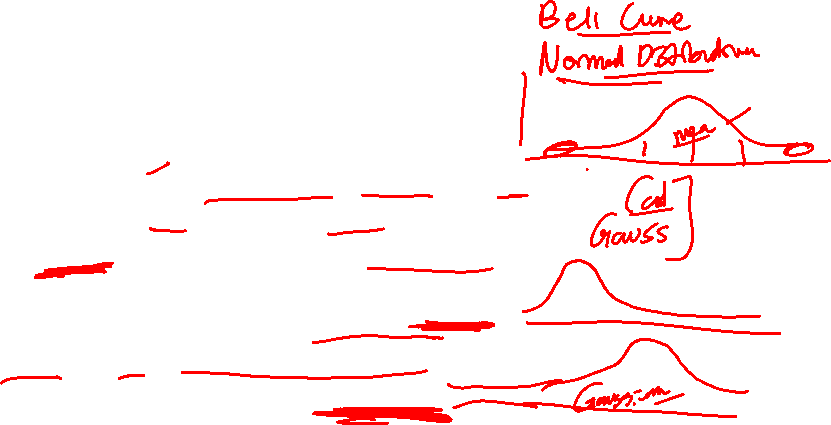 Bell Curve
Normal Distribution
mean
Carl
Gauss
Gaussian